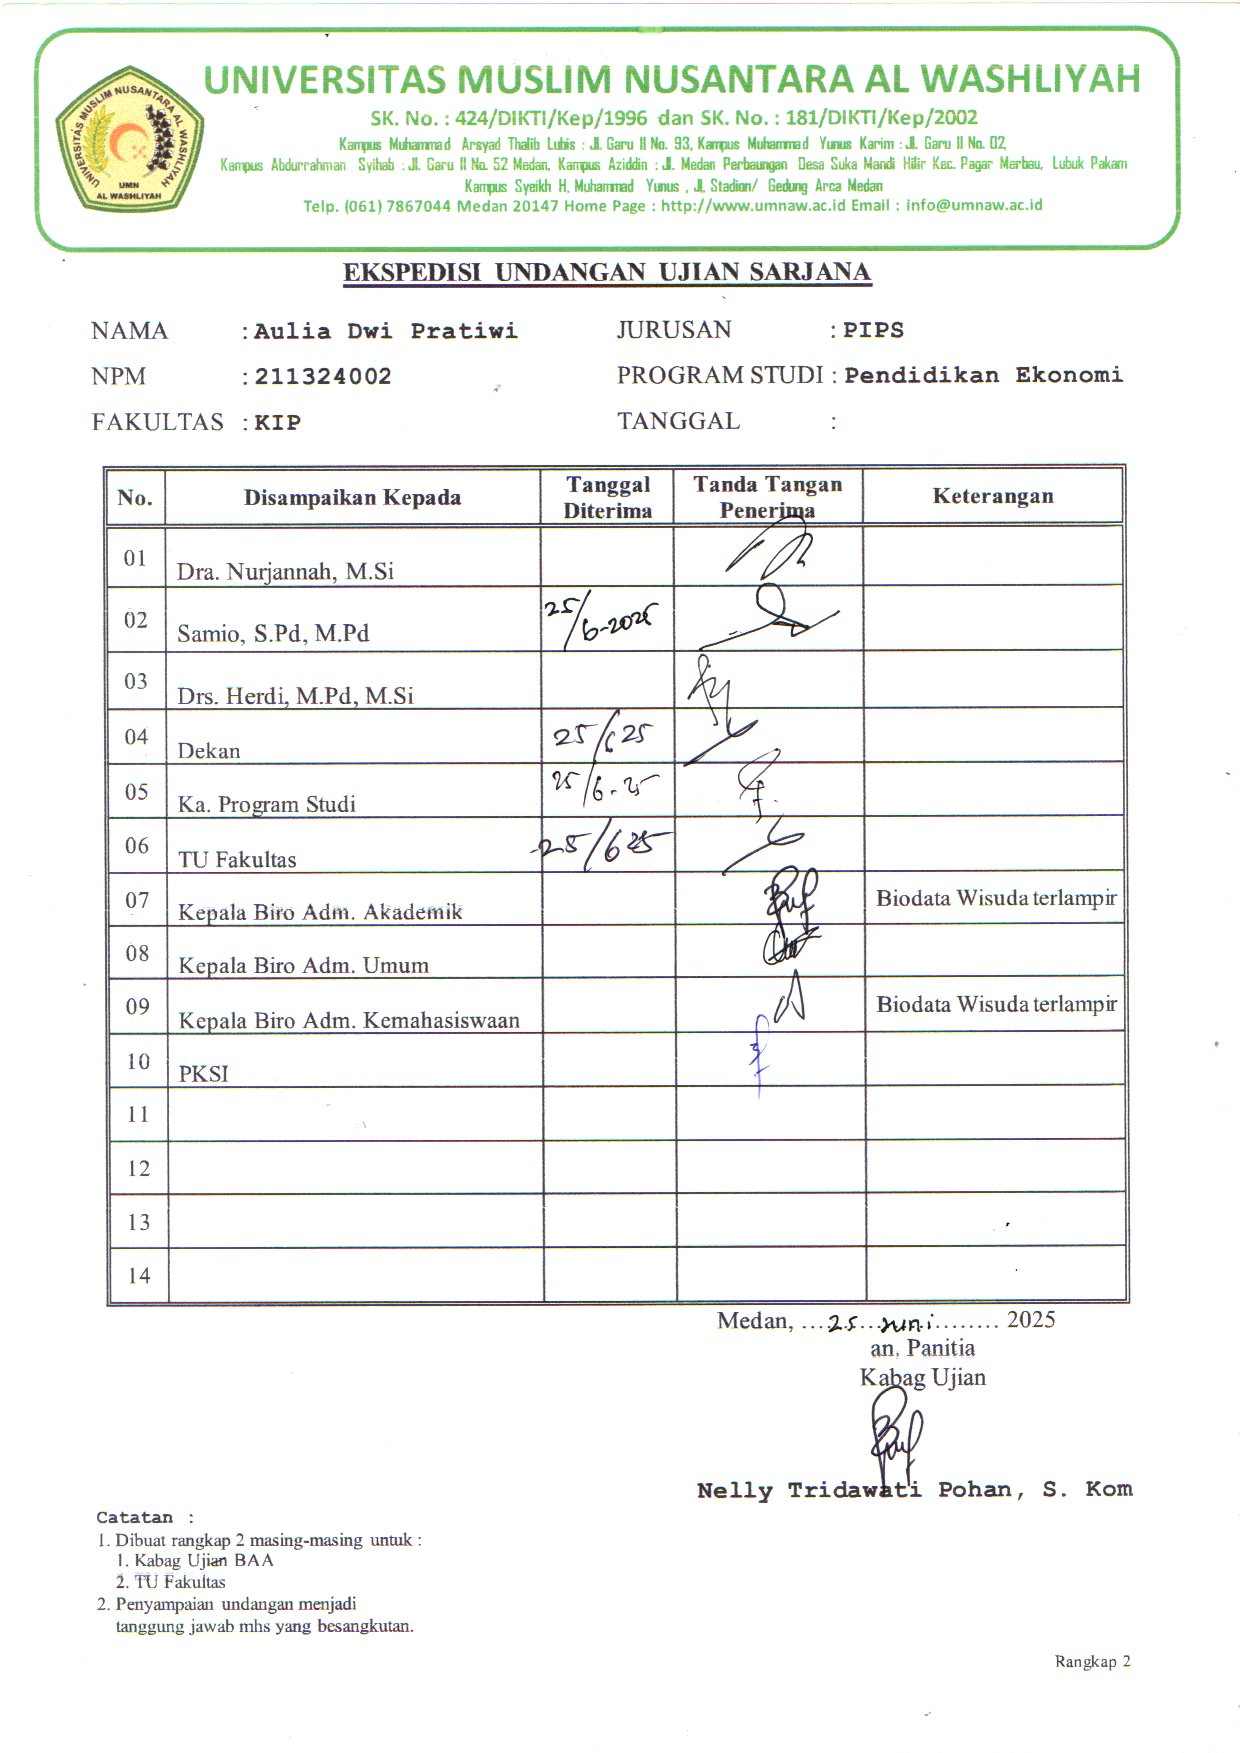 UNIVERSITAS MUSLIM NUSANTARA AL WASHLIYAH
UNIVERSITAS MUSLIM NUSANTARA AL WASHLIYAH
UMN
AL WASHLIYAH
SK. No. : 424/DIKTI/Kep/1996 dan SK. No. : 181/DIKTI/Kep/2002
Kampus Muhammad Arsyad Thalib Lubis : Jl. Garu II No. 93, Kampus Muhammad Yunus Karim : Jl. Garu II No. 02,
Kampus Abdurrahman Syihab : Jl. Garu II No. 52 Medan, Kampus Aziddin : Jl. Medan Perbaungan Desa Suka Mandi Hilir Kec. Pagar Merbau, Lubuk Pakam
Kampus Syeikh H. Muhammad Yunus , Jl. Stadion/ Gedung Arca Medan
Telp. (061) 7867044 Medan 20147 Home Page : http://www.umnaw.ac.id Email : info@umnaw.ac.id
EKSPEDISI UNDANGAN UJIAN SARJANA
NAMA : Aulia Dwi Pratiwi JURUSAN : PIPS
NPM : 211324002 PROGRAM STUDI : Pendidikan Ekonomi
FAKULTAS : KIP TANGGAL :
No. Disampaikan Kepada Tanggal Diterima Tanda Tangan Penerima Keterangan
01 Dra. Nurjannah, M.Si
02 Samio, S.Pd, M.Pd 25/6-2025
03 Drs. Herdi, M.Pd, M.Si
04 Dekan 25/6 25
05 Ka. Program Studi 25/6-25
06 TU Fakultas 25/6 25
07 Kepala Biro Adm. Akademik Biodata Wisuda terlampir
08 Kepala Biro Adm. Umum
09 Kepala Biro Adm. Kemahasiswaan Biodata Wisuda terlampir
10 PKSI
11
12
13
14
Medan, ... 25 ... Juni ........ 2025
an. Panitia
Kabag Ujian
Nelly Tridawati Pohan, S. Kom
Catatan :
1. Dibuat rangkap 2 masing-masing untuk :
1. Kabag Ujian BAA
2. TU Fakultas
2. Penyampaian undangan menjadi
tanggung jawab mhs yang besangkutan.
Rangkap 2